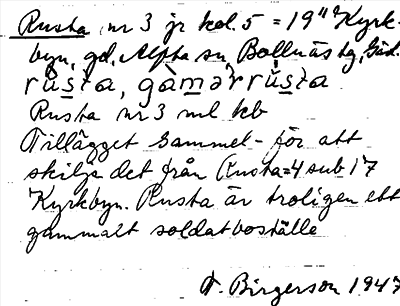 Rusta nr 3 jr kol. 5 = 19¹¹² Kyrk-
byn, gd, Alfta sn, Bollnäs tg, Gäd.
rùsta, gàmərrùsta
Rusta nr 3 ml kb
Tillägget Gammel- för att
skilja det från Rusta=4 sub 17
Kyrkbyn. Rusta är troligen ett
gammalt soldatboställe
F. Birgerson 1947